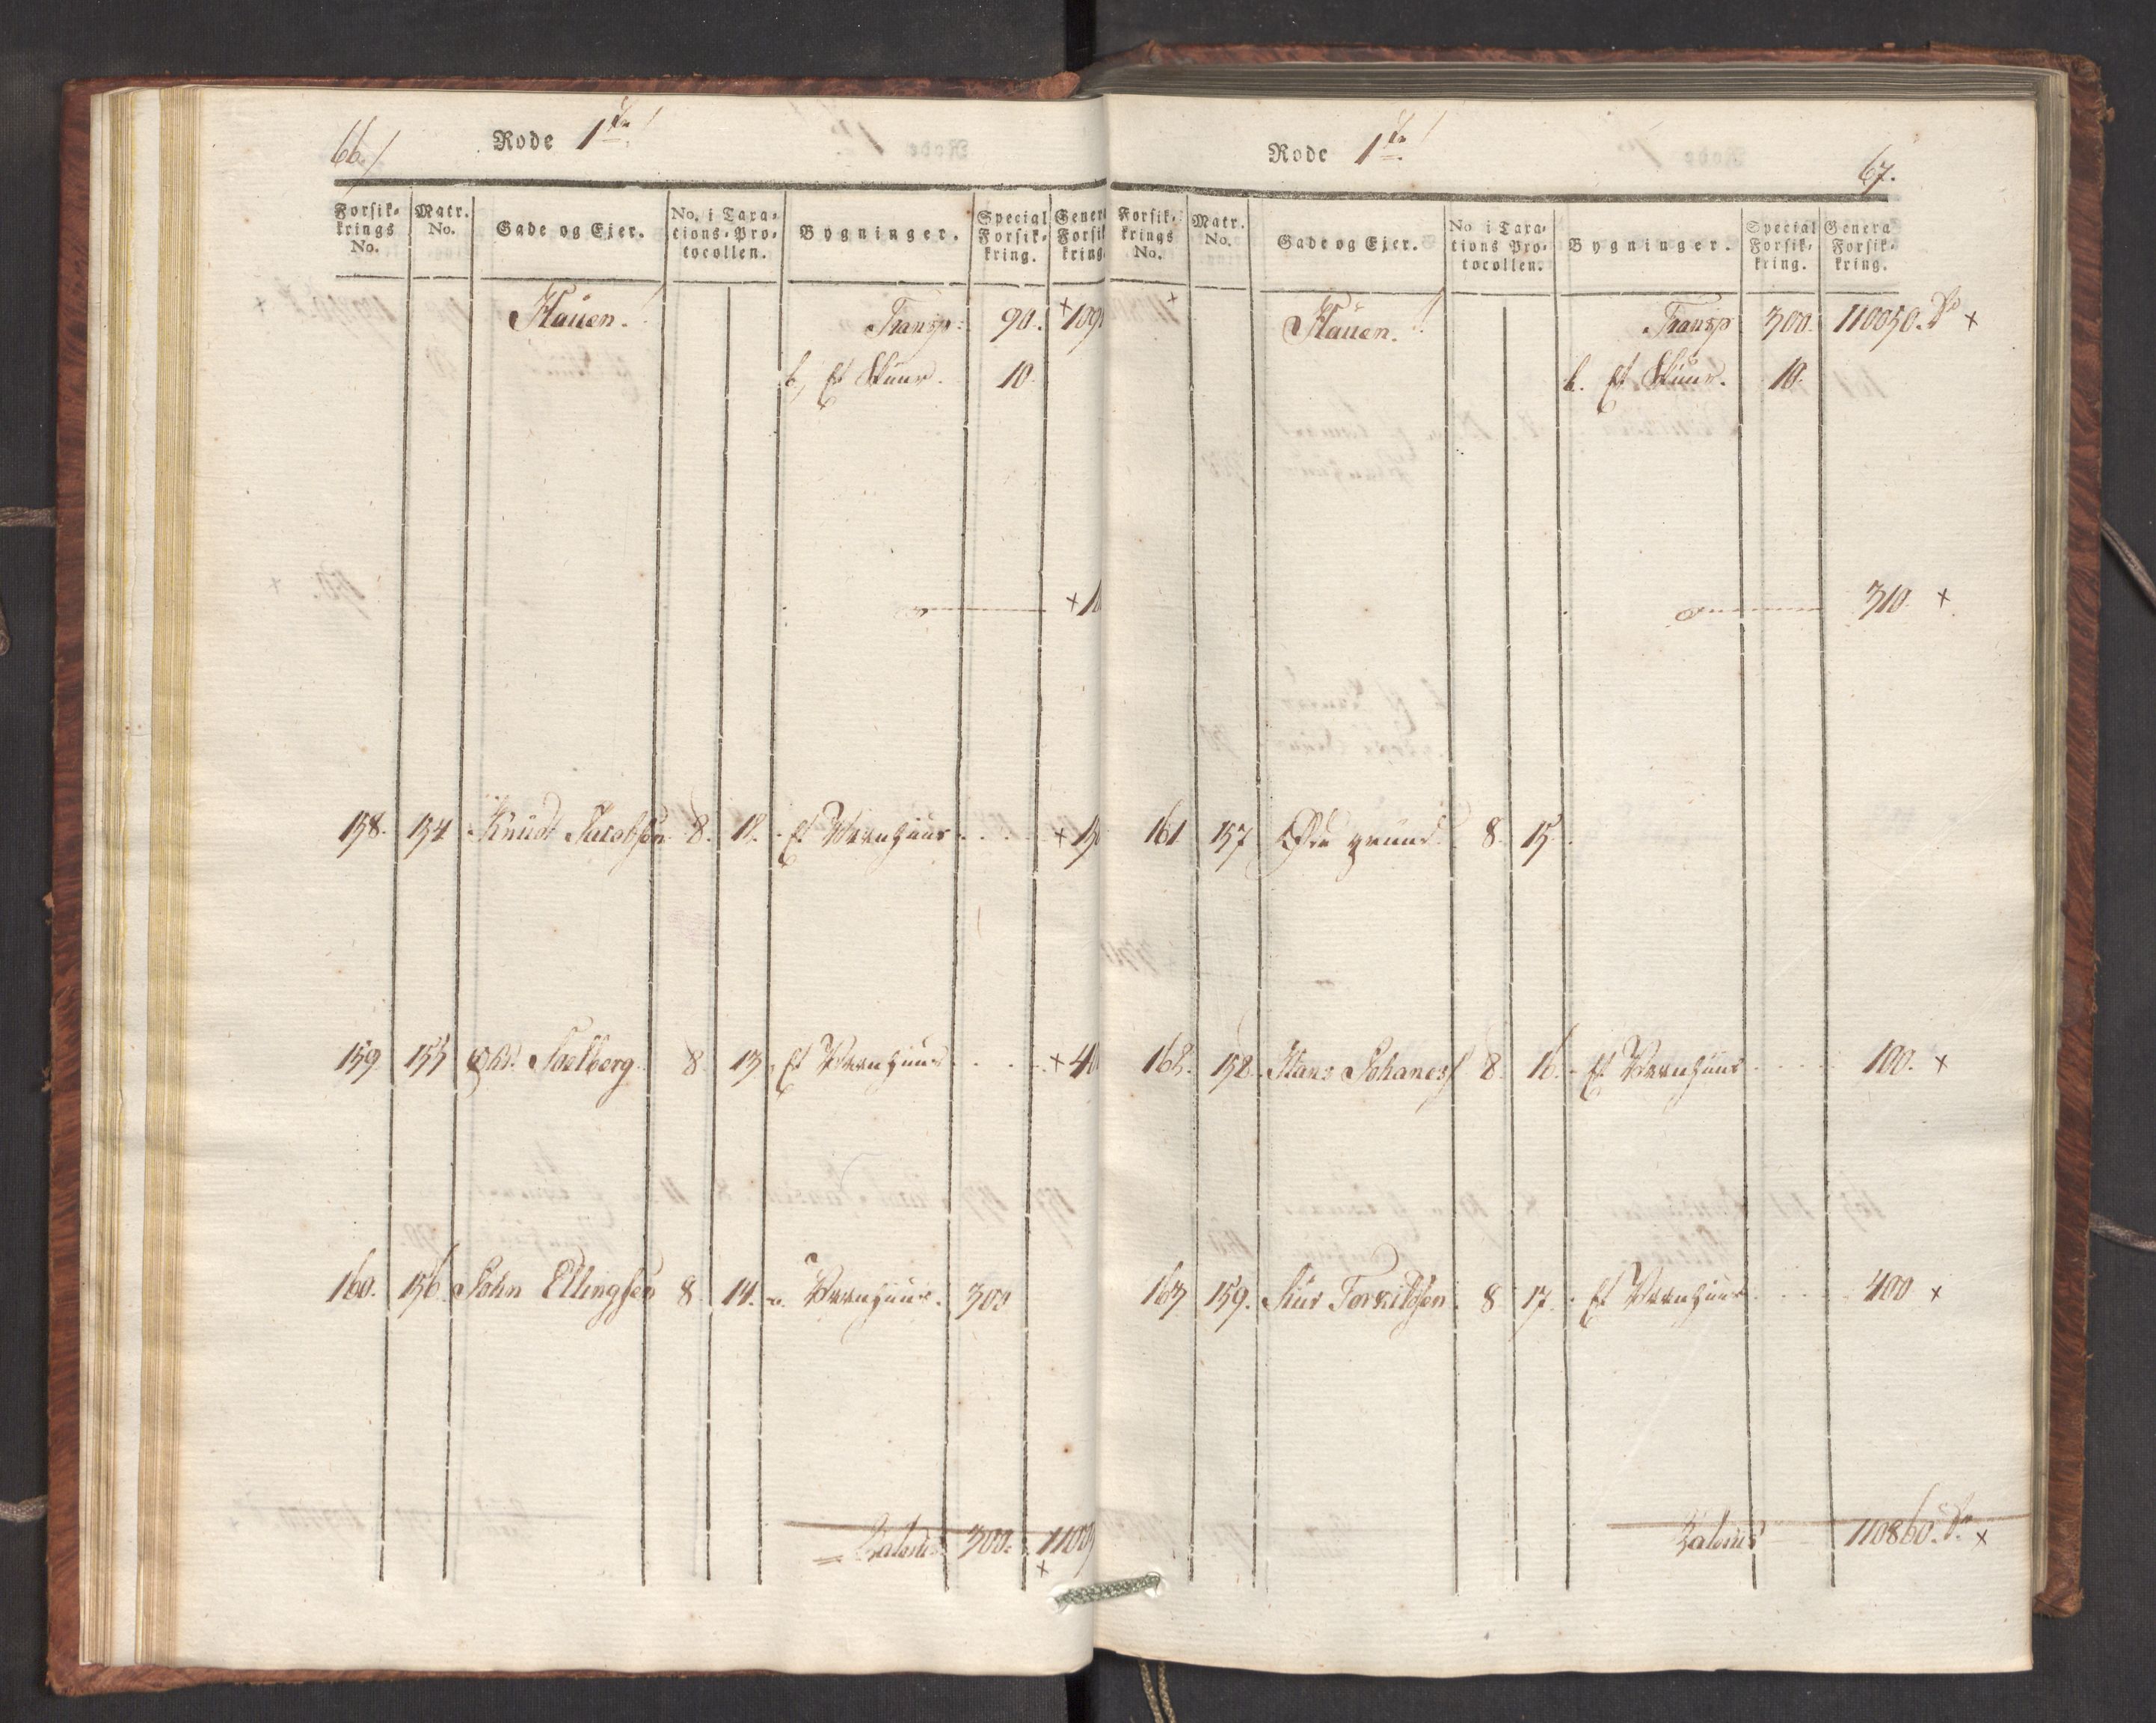 66/
Rode 1ste/
Forsik-
krings
No.
Matr.
No.
Gade og Ejer.
No. i Taxa-
tions-Pro-
tocollen.
Bygninger.
Special
Forsik-
kring.
Gener
Forsik
kring
Hauen.
Transp: 90. +109
b, Et Skuur. 10.
+1
158. 154 Knudt Jacobsen 8. 12. Et Vaanhuus . . . +15
159 155 Chr. Soelberg 8. 13. Et Vaanhuus . . . +40
160. 156. John Ellingsen 8. 14. a. Vaanhuus. 300
Lateris 300. 1100
+
Rode 1ste/
67.
Forsik-
krings
No.
Matr.
No.
Gade og Ejer.
No i Taxa-
tions Pro-
tocollen.
Bygninger.
Special
Forsik-
kring.
Genera
Forsik-
kring.
+
Hauen.
Transp 300. 110050. +
b. Et Skuur. 10.
310. +
161 157 Øde grund. 8. 15.
162. 158. Hans Johanes 8. 16. Et Vaanhuus . . . 100. +
163 159. Siur Torkildsen. 8 17. Et Vaanhuus . . . 400 +
Lateris 110860. +